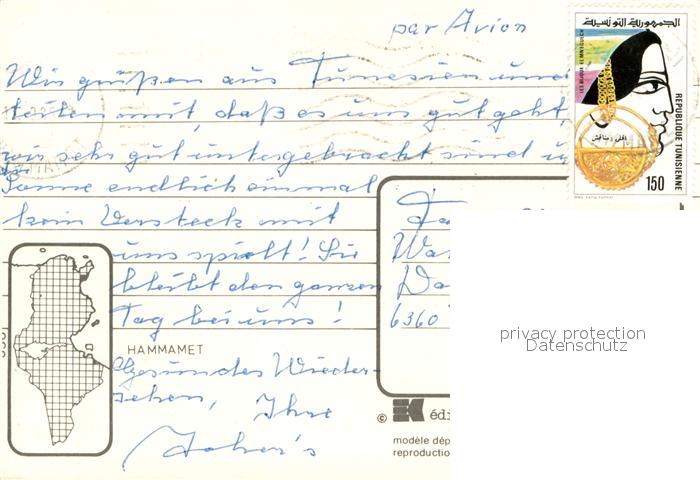 par Avion
الجمهورية التونسية
LES BIJOUX
REPUBLIQUE TUNISIENNE
150
Wir grüßen aus Tunesien und
teilen mit, daß es uns gut geht,
wir sehr gut untergebracht sind u
Sonne endlich einmal
kein Versteck mit
uns spielt! Sie
bleibt den ganzen
Tag bei uns!
HAMMAMET
Gesundes Wieder-
sehen, Ihre
Fa
Wa
Da
6360
privacy protection
Datenschutz
© EK édi
modèle dép
reproductio